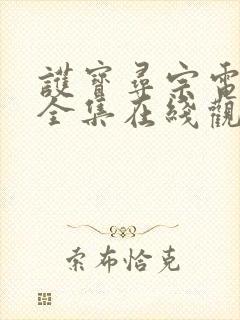 護寶尋宗電
全集在綫觀
索布恰克